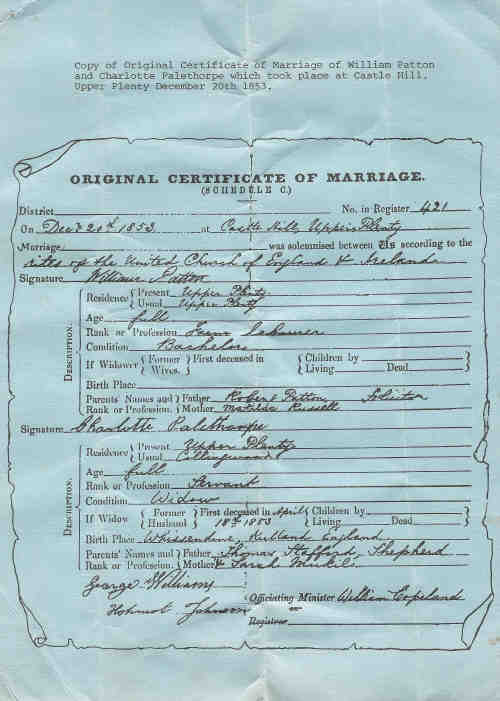 Copy of Original Certificate of Marriage of William Patton
and Charlotte Palethorpe which took place at Castle Hill,
Upper Plenty December 20th 1853.
ORIGINAL CERTIFICATE OF MARRIAGE.
(SCHEDULE C.)
District No. in Register 421
On Decr 20th 1853 at Castle Hill, Upper Plenty
Marriage was solemnised between Us according to the
rites of the United Church of England & Ireland
Signature William Patton
DESCRIPTION.
Residence { Present Upper Plenty
Usual Upper Plenty
Age full
Rank or Profession Farm Labourer
Condition Bachelor
If Widower { Former Wives. } First deceased in { Children by
Living Dead }
Birth Place
Parents' Names and Rank or Profession. } Father Robert Patton Solicitor
Mother Matilda Russell
Signature Charlotte Palethorpe
DESCRIPTION.
Residence { Present Upper Plenty
Usual Collingwood
Age full
Rank or Profession Servant
Condition Widow
If Widow { Former Husband } First deceased in April 18th 1853 { Children by
Living Dead }
Birth Place Whissendine, Rutland England
Parents' Names and Rank or Profession. } Father Thomas Stafford, Shepherd
Mother & Sarah
George Williams
Officiating Minister William Copeland
or
Johnson
Registrar